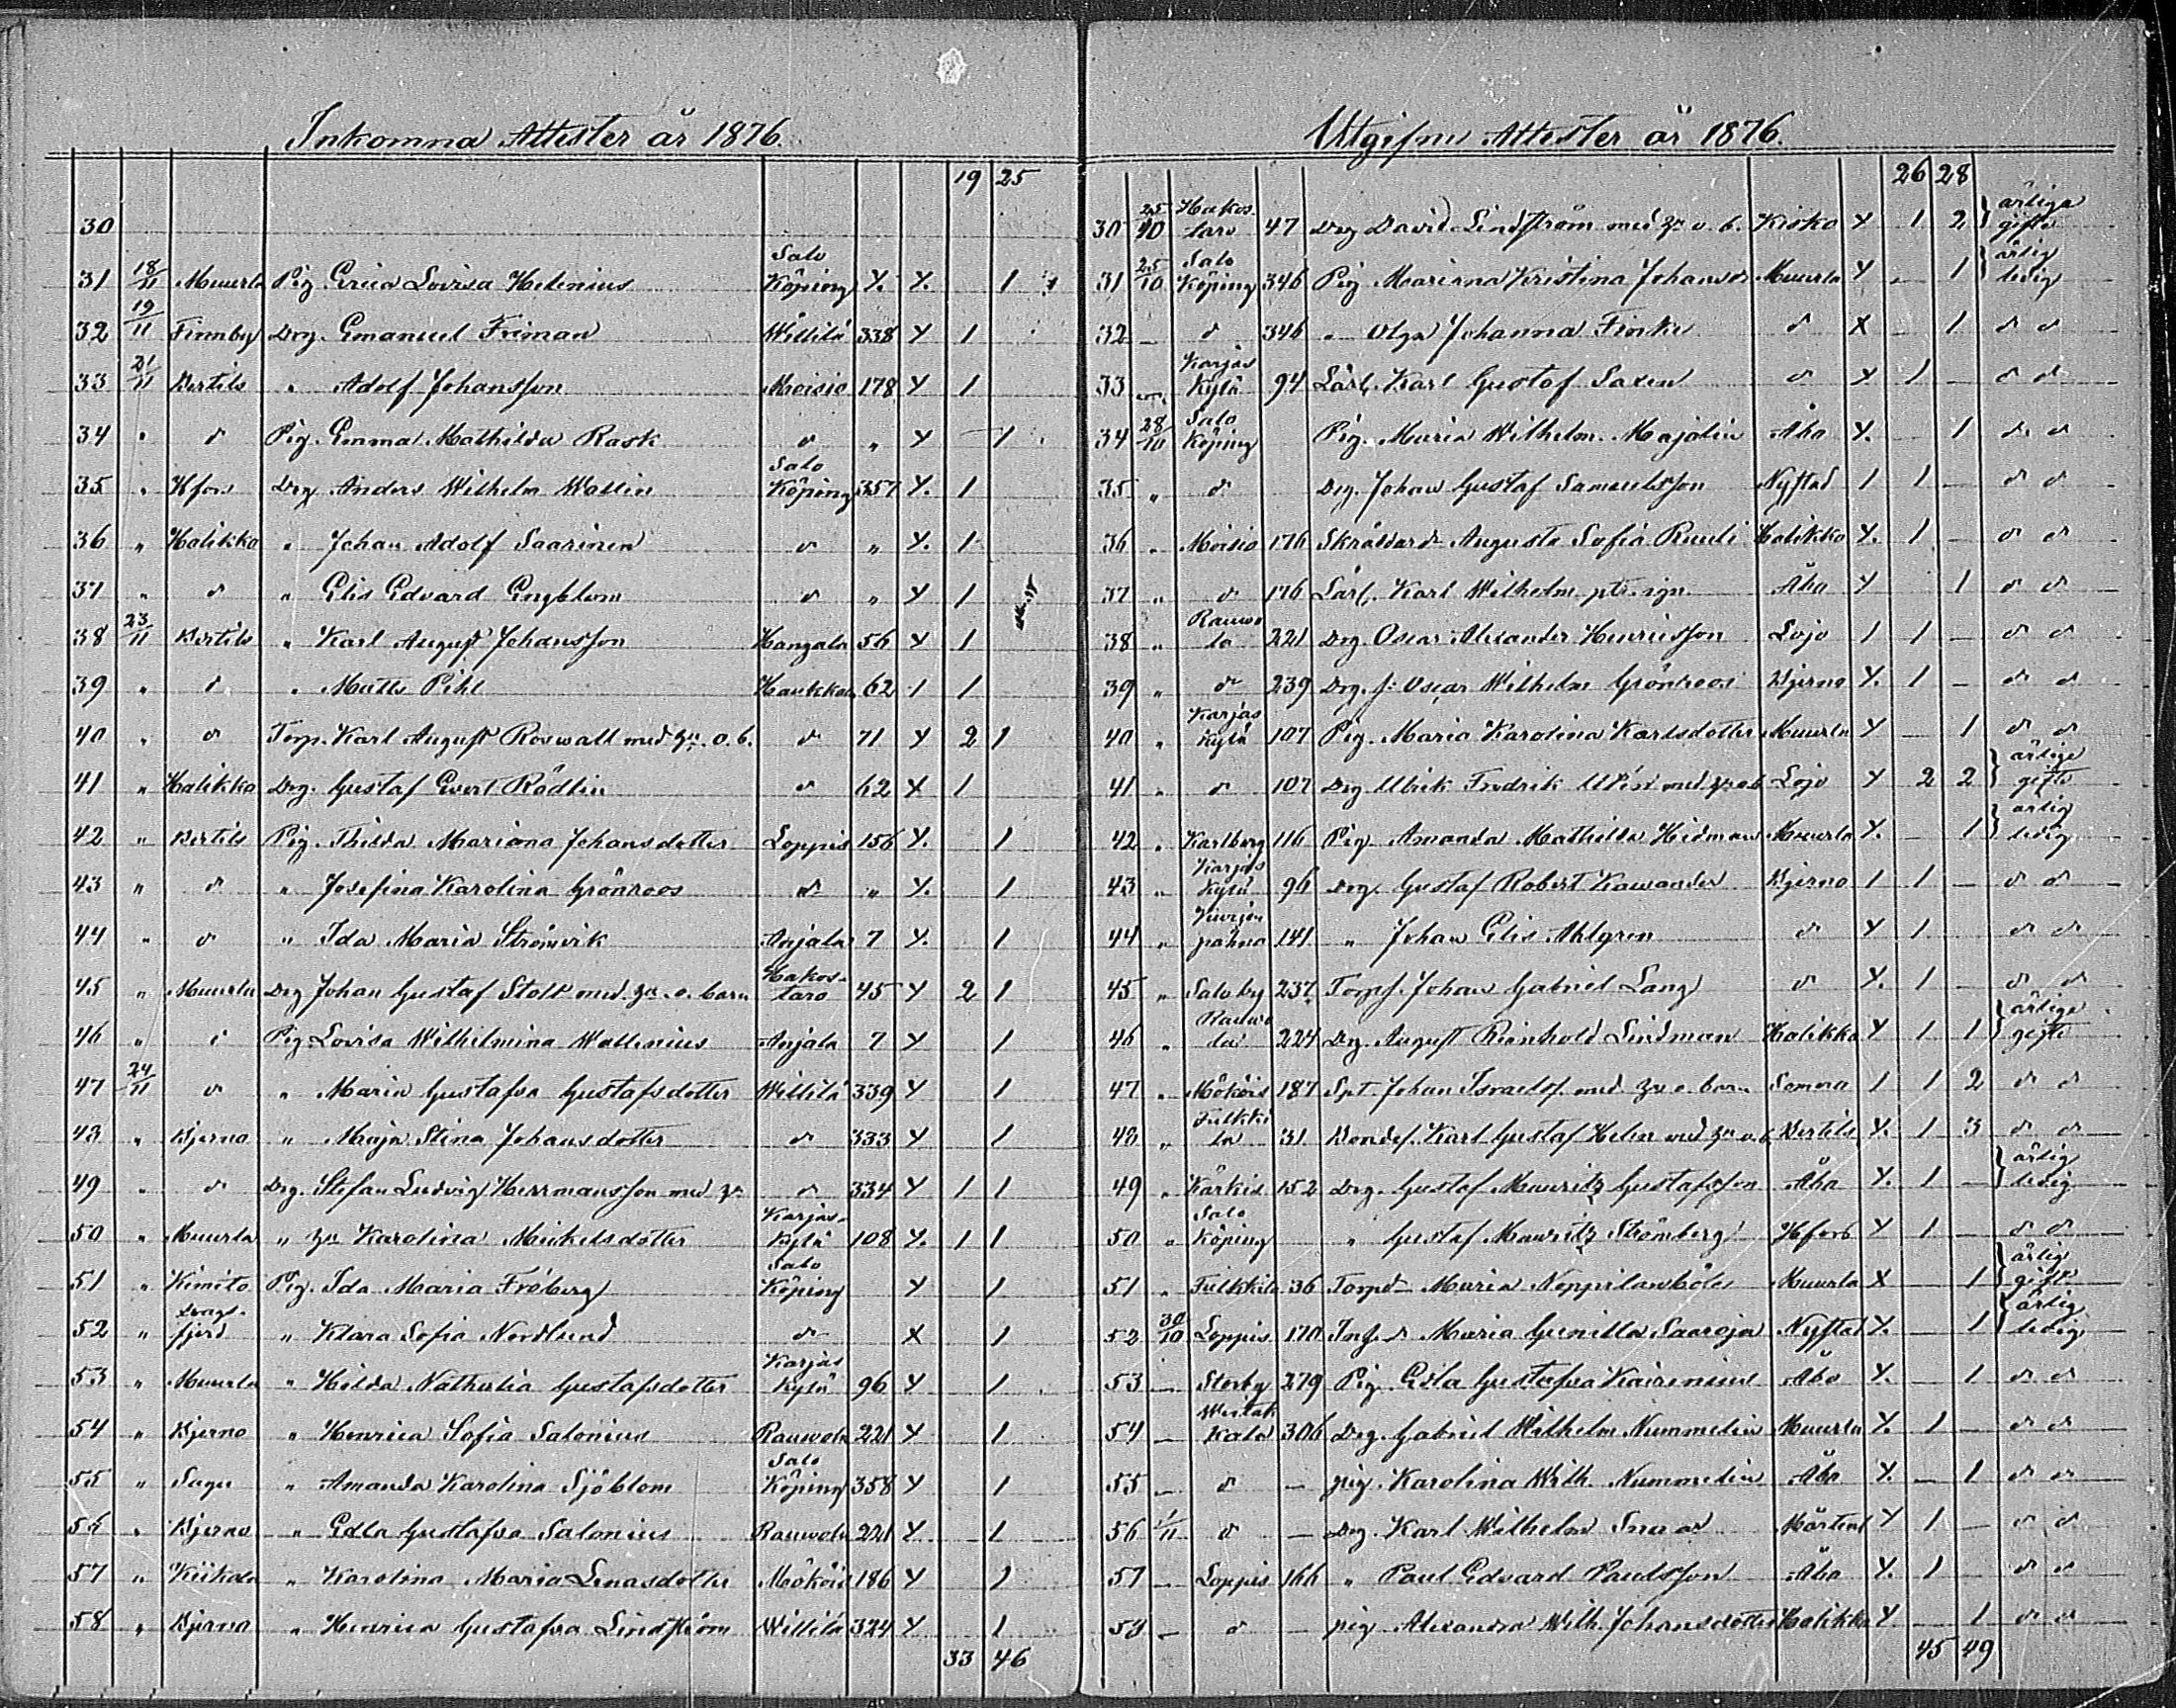 Inkomna Attester år 1876.
19 25
30
31 18/11 Muurla Pig. Erica Lovisa Helenius Salo Köping Y. Y. 1
32 19/11 Finnby Drg. Emanuel Friman Willilä 338 Y 1
33 21/11 Bertils " Adolf Johansson Moisio 178 Y 1
34 " d Pig. Emma Mathilda Rask d " Y — 1
35 " Hfors Drg Anders Wilhelm Wallin Salo Köping 357 Y. 1
36 " Halikko " Johan Adolf Saarinen d " Y. 1
37 " d " Elis Edvard Engblom d " Y 1
38 23/11 Bertils " Karl August Johansson Kangala 56 Y 1
39 " d " Matts Pihl Haukkala 62 1 1
40 " d Torp. Karl August Roswall med hu. o. b. d 71 Y 2 1
41 " Halikko Drg. Gustaf Evert Rödlin d 62 X 1
42 " Bertils Pig. Thilda Mariana Johansdotter Loppis 156 Y. 1
43 " d " Josefina Karolina Grönroos d " Y. 1
44 " d " Ida Maria Strömvik Anjala 7 Y. 1
45 " Muurla Drg Johan Gustaf Stolt med hu. o. barn Hakostaro 45 Y 2 1
46 " d Pig Lovisa Wilhelmina Wallenius Anjala 7 Y 1
47 24/11 d " Maria Gustafva Gustafsdotter Willilä 339 Y 1
48 " Bjerno " Maja Stina Johansdotter d 333 Y 1
49 " d Drg. Stefan Ludvig Herrmansson med hu d 334 Y 1 1
50 " Muurla " hu Karolina Mickelsdotter Karjaskylä 108 Y. 1 1
51 " Kimito Pig. Ida Maria Fröberg Salo Köping Y 1
52 " Dragsfjerd " Klara Sofia Nordlund d X 1
53 " Muurla " Hilda Nathalia Gustafsdotter Karjaskylä 96 Y 1
54 " Bjerno " Henrica Sofia Salonius Rauvola 221 Y 1
55 " Sagu " Amanda Karolina Sjöblom Salo Köping 358 Y 1
56 " Bjerno " Edla Gustafva Salonius Rauvola 221 Y 1
57 " Kiikala " Karolina Maria Lenasdotter Mököis 186 Y 1
58 " Bjerno " Henrica Gustafva Lindström Willilä 324 Y 1
33 46
Utgifne Attester år 1876.
26 28
30 25/10 Hakostaro 47 Drg David Lindström med hu o. b. Kisko Y 1 2 ärliga gifta
31 25/10 Salo Köping 346 Pig Mariana Kristina Johansdr Muurla Y — 1 ärlig ledig
32 — d 346 " Olga Johanna Finke d X — 1 d d
33 — Karjaskylä 94 Lärl. Karl Gustaf Saxen d Y 1 — d d
34 28/10 Salo Köping Pig. Maria Wilhelm. Majalin Åbo Y. 1 d d
35 " d Drg. Johan Gustaf Samuelsson Nystad 1 1 — d d
36 " Moisio 176 Skräddar d. Augusta Sofia Ruuli Halikko Y. 1 — d d
37 " d 176 Lärl. Karl Wilhelm Åbo Y 1 d d
38 " Rauvola 221 Drg. Oscar Alexander Henricsson Lojo 1 1 — d d
39 " d 239 Drg. f: Oscar Wilhelm Grönroos Bjerno Y. 1 — d d
40 " Karjaskylä 107 Pig. Maria Karolina Karlsdotter Muurla Y — 1 d d
41 " d 107 Drg Ulrik Fredrik med hu o b Lojo Y 2 2 ärliga gifta
42 " Karlberg 116 Pig Amanda Mathilda Hidman Muurla Y. — 1 ärlig ledig
43 " Karjaskylä 96 Drg. Gustaf Robert Kavander Bjerno 1 1 — d d
44 " 141 " Johan Elis Ahlgren d Y 1 d d
45 " Salo by 237 Torps. Johan Gabriel Lang d Y. 1 — d d
46 " Rauvola 224 Drg. August Reinhold Lindman Halikko Y 1 1 ärliga gifta
47 " Mököis 187 Spt. Johan Israelss. med hu o. barn Somero 1 1 2 d d
48 " Tulkkila 31 Bondes. Karl Gustaf Helin med hu o. b Bertils Y. 1 3 d d
49 " Kärkis 152 Drg. Gustaf Mauritz Gustafsson Åbo Y. 1 — ärlig ledig
50 " Salo Köping " Gustaf Mauritz Strömberg Hfors Y 1 — d d
51 " Tulkkila 36 Torpd Maria Muurla X 1 ärlig gift
52 30/10 Loppis 170 Inh. d Maria Gunilla Saaroja Nystad Y. — 1 ärlig ledig
53 — Storby 279 Pig. Edla Gustafva Kairenius Åbo Y. — 1 d d
54 — 306 Drg. Gabriel Wilhelm Nummelin Muurla Y. 1 — d d
55 — d — pig. Karolina Wilh. Nummelin Åbo Y. — 1 d d
56 1/11 d — Drg. Karl Wilhelm Mårtens Y 1 — d d
57 — Loppis 166 " Paul Edvard Paulsson Åbo Y. 1 — d d
58 — d — pig Alexandra Wilh. Johansdotter Halikko Y — 1 d d
45 49